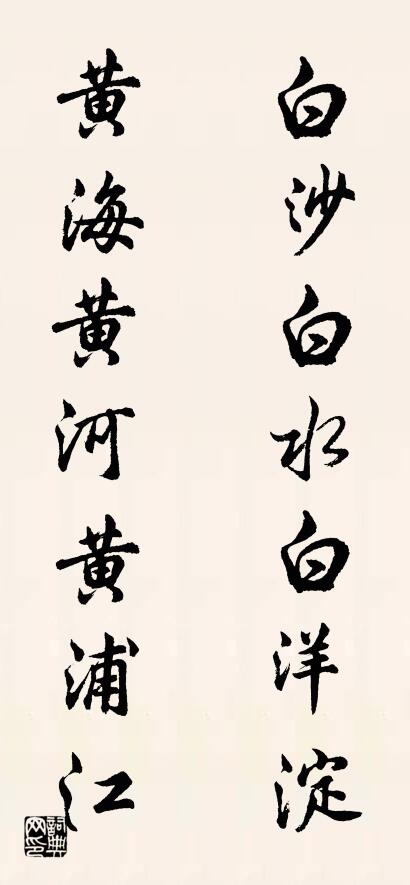 白沙白水白洋淀
黄海黄河黄浦江
词典网印